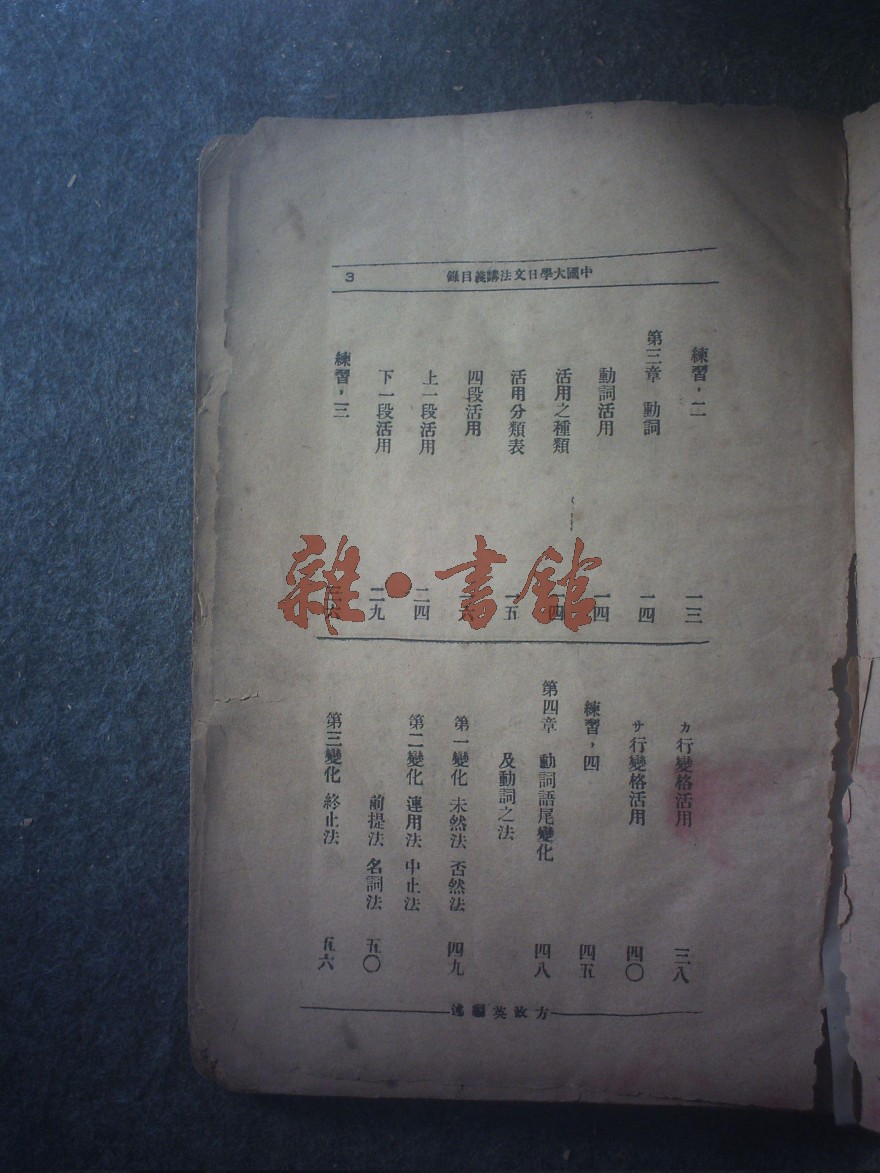 中國大學日文法講義目錄
3
練習，二 一三
第三章 動詞 一四
動詞活用 一四
活用之種類 一四
活用分類表 一五
四段活用 一六
上一段活用 二四
下一段活用 二九
練習，三 三六
雜·書館
カ行變格活用 三八
サ行變格活用 四〇
練習，四 四五
第四章 動詞語尾變化
及動詞之法 四八
第一變化 未然法 否然法 四九
第二變化 連用法 中止法
前提法 名詞法 五〇
第三變化 終止法 五六
方政英編述